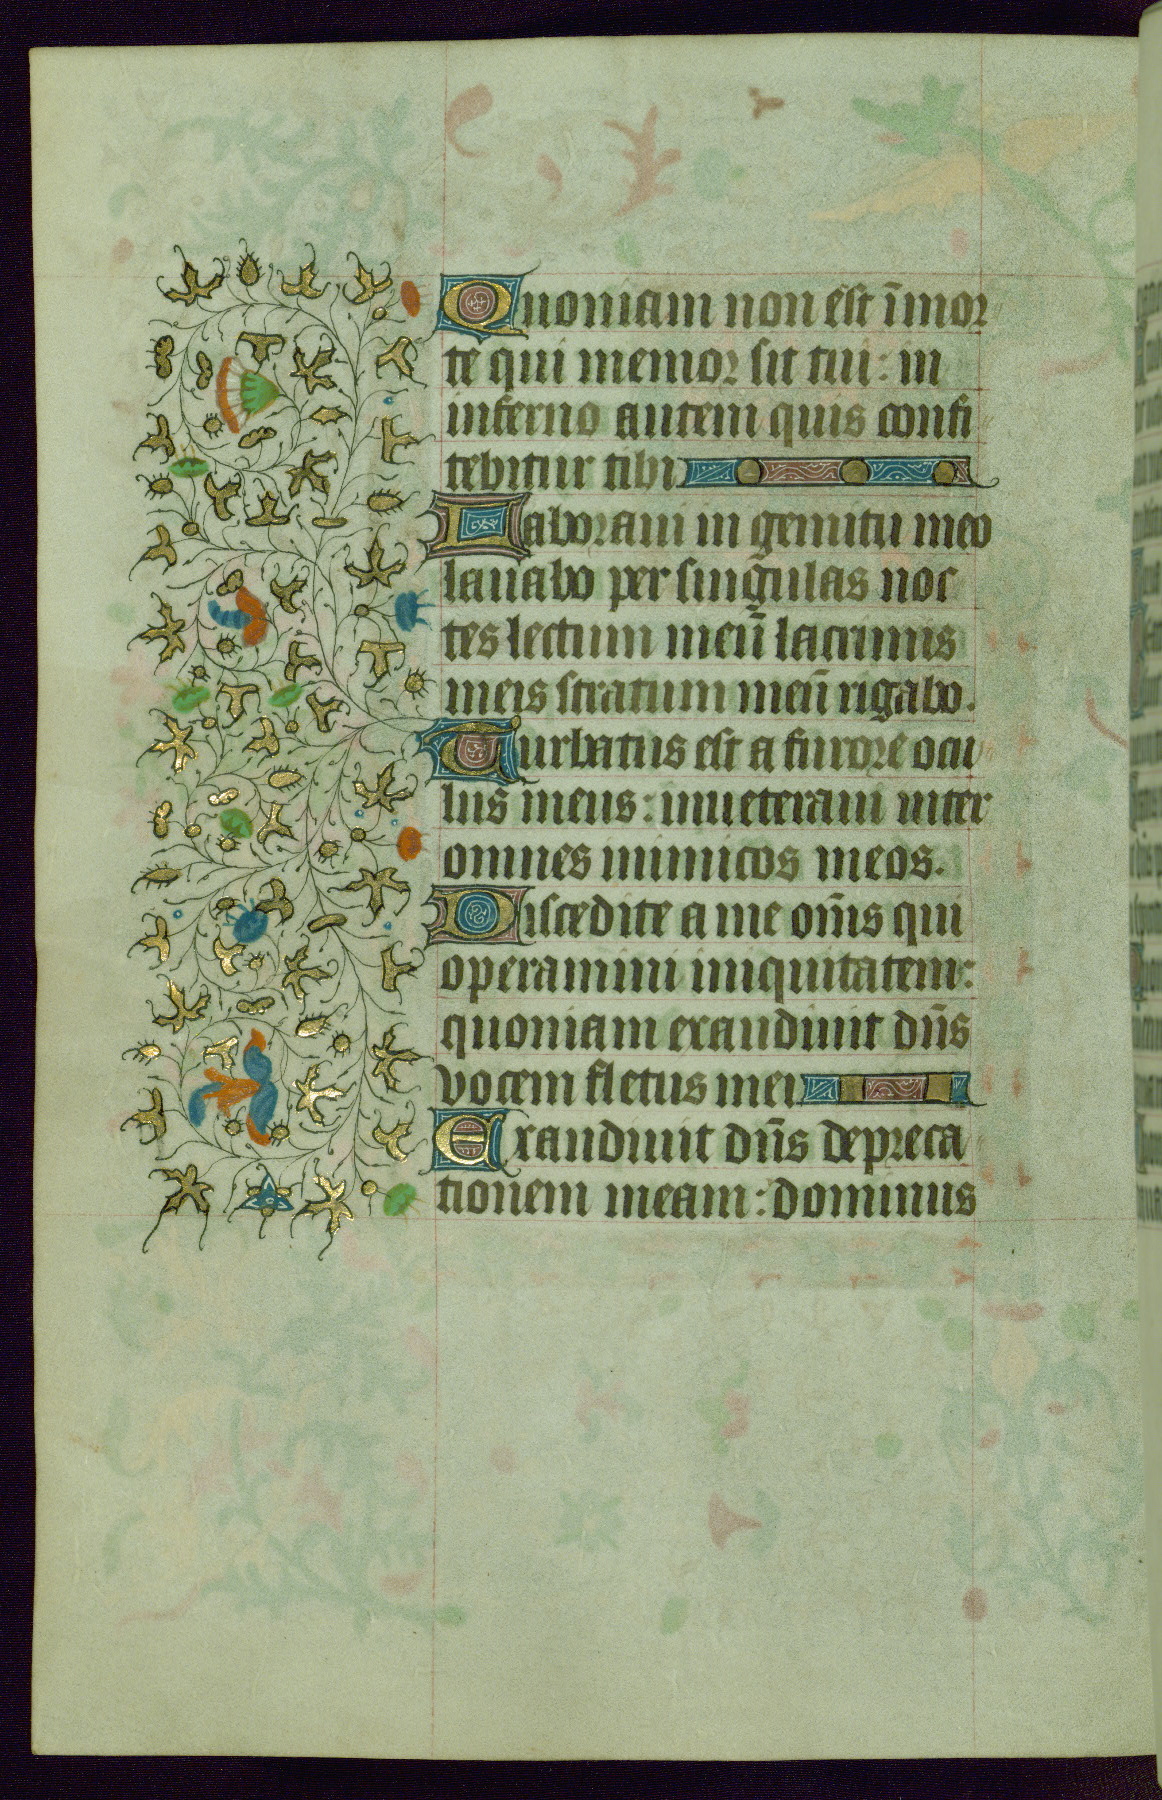 Quoniam non est ī mor
te qui memor sit tui: in
inferno autem quis confi
tebitur tibi
Laboraui in gemitu meo
lauabo per singulas noc
tes lectum meū lacrimis
meis stratum meū rigabo.
Turbatus est a furore ocu
lus meus: inueteraui inter
omnes inimicos meos.
Discedite a me om̄s qui
operamini iniquitatem:
quoniam exaudiuit dn̄s
vocem fletus mei
Exaudiuit dn̄s depreca
tionem meam: dominus